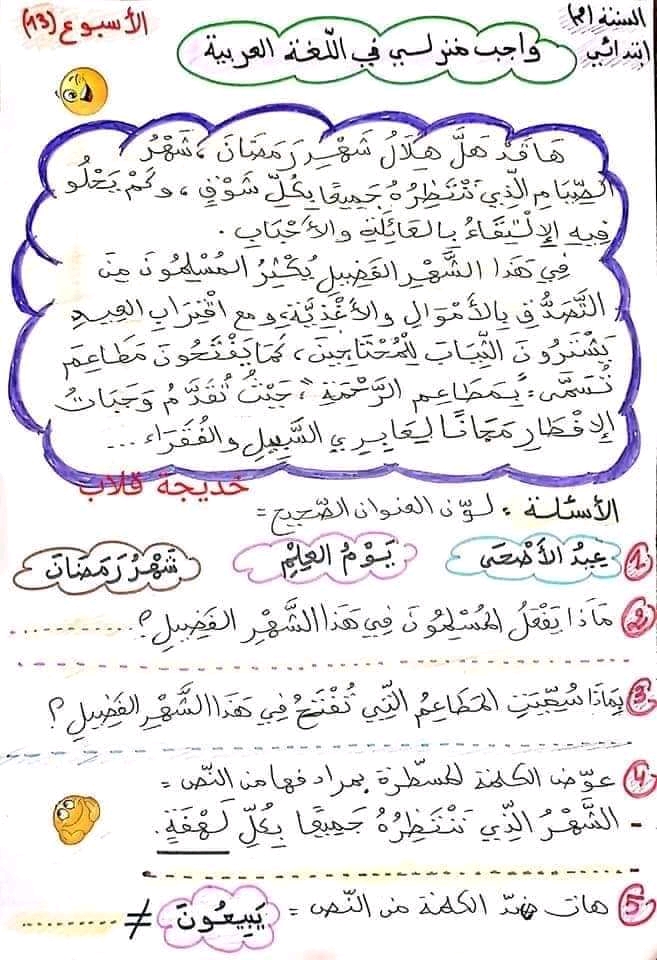 السنة (3) ابتدائي
الأسبوع (13)
واجب منزلي في اللّغة العربية
هَا قَدْ هَلَّ هِلَالُ شَهْرِ رَمَضَانَ ، شَهْرُ
الصِّيَامِ الَّذِي نَنْتَظِرُهُ جَمِيعًا بِكُلِّ شَوْقٍ ، وَكَمْ يَحْلُو
فِيهِ الِالْتِقَاءُ بِالعَائِلَةِ والأَحْبَابِ .
فِي هَذَا الشَّهْرِ الفَضِيلِ يُكْثِرُ المُسْلِمُونَ مِنَ
التَّصَدُّقِ بِالأَمْوَالِ والأَغْذِيَّةِ، ومع اقْتِرَابِ العِيدِ
يَشْتَرُونَ الثِّيَابَ لِلْمُحْتَاجِينَ ، كَمَا يَفْتَحُونَ مَطَاعِمَ
تُسَمَّى: "بِمَطَاعِمِ الرَّحْمَةِ"، حَيْثُ تُقَدَّمُ وَجَبَاتُ
الإِفْطَارِ مَجَّانًا لِعَابِرِي السَّبِيلِ والفُقَرَاء ...
خديجة قلاب
الأسئلة : لوّن العنوان الصّحيح =
1 عِيدُ الأَضْحَى يَوْمُ العِلْمِ شَهْرُ رَمَضَانَ
2 مَاذَا يَفْعَلُ المُسْلِمُونَ فِي هَذَا الشَّهْرِ الفَضِيلِ؟ ............
3 بِمَاذَا سُمِّيَتِ المَطَاعِمُ الَّتِي تُفْتَحُ فِي هَذَا الشَّهْرِ الفَضِيلِ ؟
4 عوّض الكلمة المسطّرة بمرادفها من النّص =
- الشَّهْرُ الَّذِي نَنْتَظِرُهُ جَمِيعًا بِكُلِّ لَهْفَةٍ .
5 هات ضدّ الكلمة من النّص = يَبِيعُونَ ≠ ............